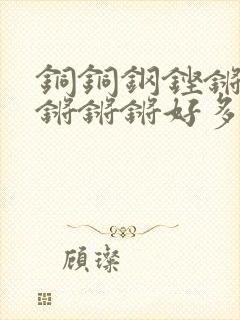 銅銅鋼鏗鏘
鏘鏘鏘好多
顾璨